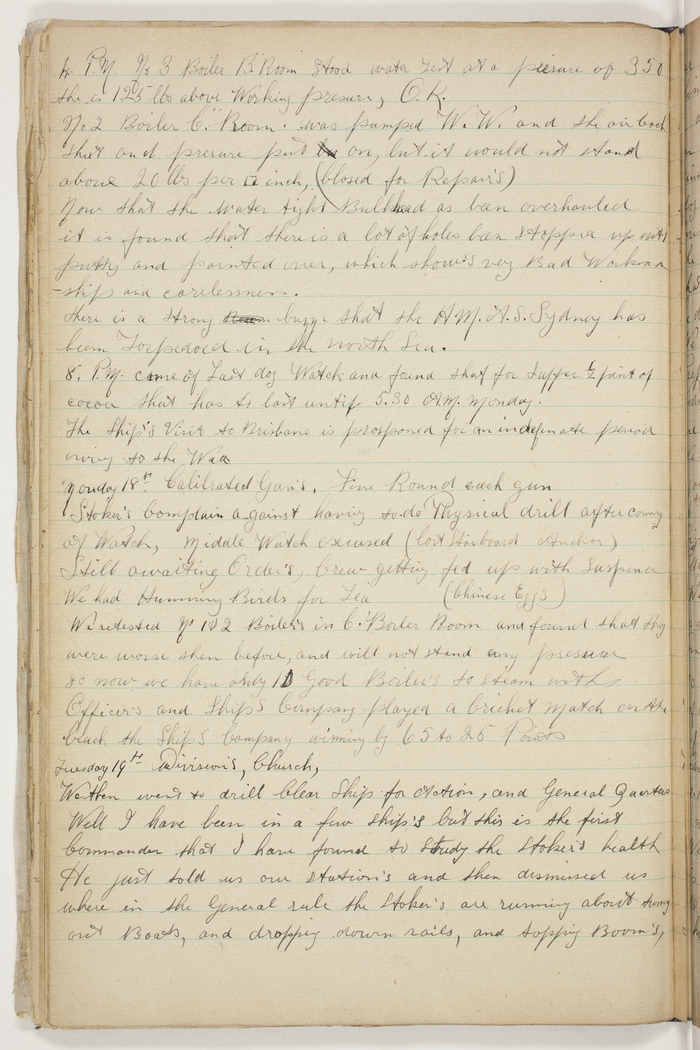 4. P.M. No 3 Boiler B. Room stood water test at a presure of 350
the is 125 lbs above Working presure, O.K.
No 2 Boiler C. Room. was pumped W.W. and the air cock
shut and presure put on, but it would not stand
above 20 lbs per □ inch, (closed for Repair's)
Now that the water tight Bulkhead as been overhauled
it is found that there is a lot of holes been stopped up with
putty and painted over, which show's very Bad Workman
-ship and carelessness.
there is a strong buzze that the H.M.A.S. Sydney has
been Torpedoed in the North Sea.
8. P.M. came of Last dog Watch and found that for supper ½ pint of
cocoa that has to last until 5.30 A.M. Monday.
The Ship's Visit to Brisbane is prosponed for an indefenate period
owing to the War
Monday 18th Calibrated Gun's. Five Round each gun
Stoker's Complain against having to do Physical drill after coming
of Watch, Middle Watch excused (lost Starboard Anchor)
Still awaiting Order's, Crew getting fed up with Suspence
We had Humming Birds for Tea (Chinese Eggs)
We retested No 1 & 2 Boiler's in C. Boiler Room and found that they
were worse then before, and will not stand any presure
so now we have only 10 Good Boiler's to steam with
Officer's and Ship's Company played a Cricket Match on the
beach the Ship's Company winning by 65 to 25 Points
Tuesday 19th Division's, Church,
We then went to drill Clear Ship for Action, and General Quarters
Well I have been in a few ship's but this is the first
Commander that I have found to study the Stoker's health
He just told us our station's and then dismissed us
where in the General rule the Stoker's are running about
out Boats, and dropping down rails, and topping Boom's,